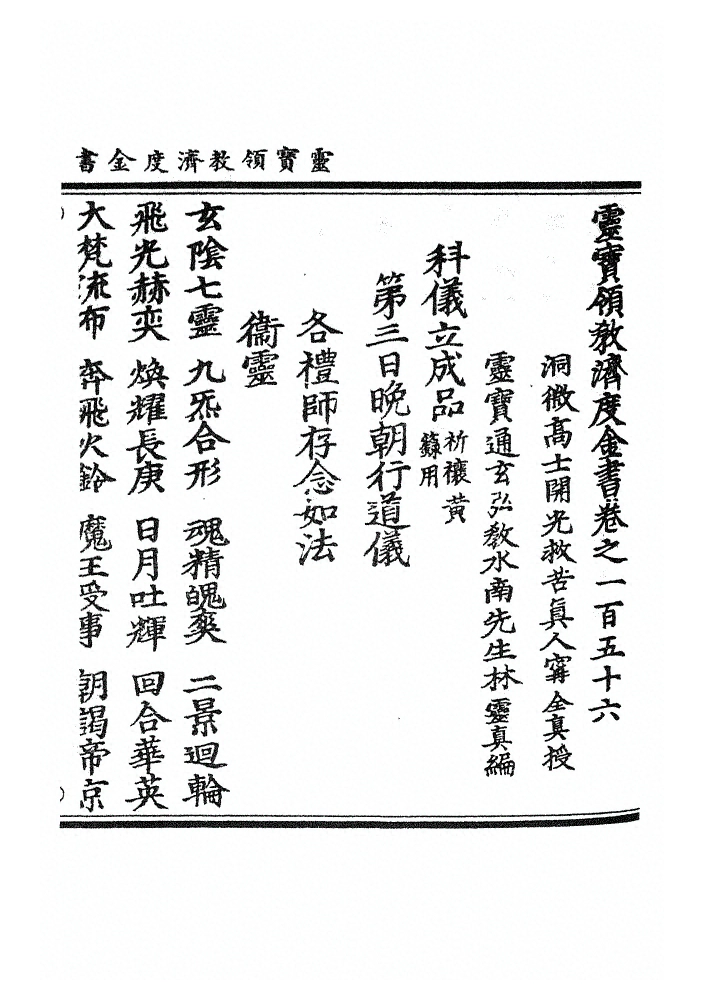 靈寶領教濟度金書
靈寶領教濟度金書卷之一百五十六
洞微高士開光救苦眞人寗全真授
靈寶通玄弘教水南先生林靈真編
科儀立成品祈禳黃籙用
第三日晚朝行道儀
各禮師存念如法
衞靈
玄陰七靈 九炁合形 魂精魄爽 二景迴輪
飛光赫奕 煥耀長庚 日月吐輝 回合華英
大梵流布 奔飛火鈴 魔王受事 朝謁帝京